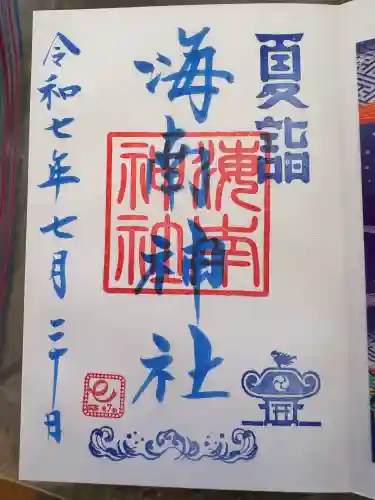 夏詣
海南神社
海南神社
令和七年七月二十日